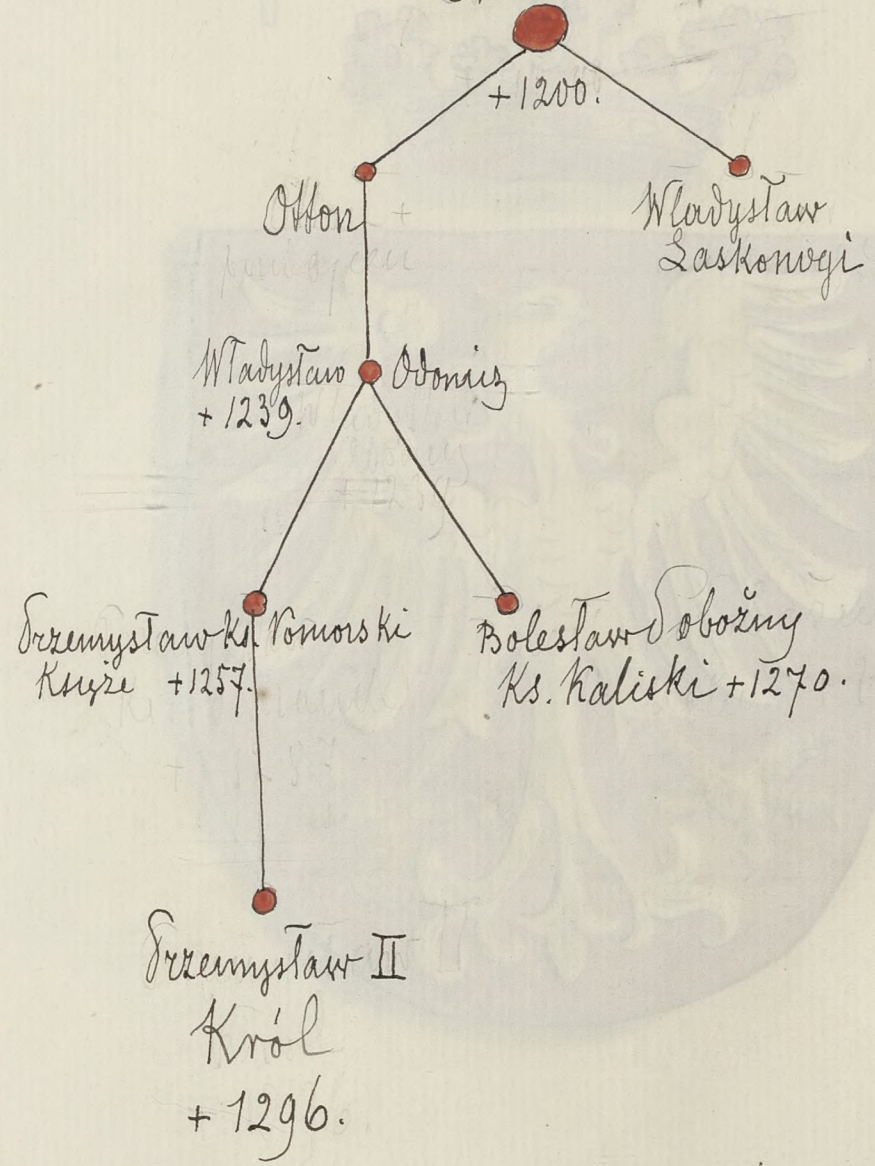 +1200.
Otton
Władysław
Laskonogi
Władysław Odonicz
+ 1239.
Przemysław Ks. Pomorski
Książe +1257.
Bolesław Pobożny
Ks. Kaliski +1270.
Przemysław II
Król
+ 1296.